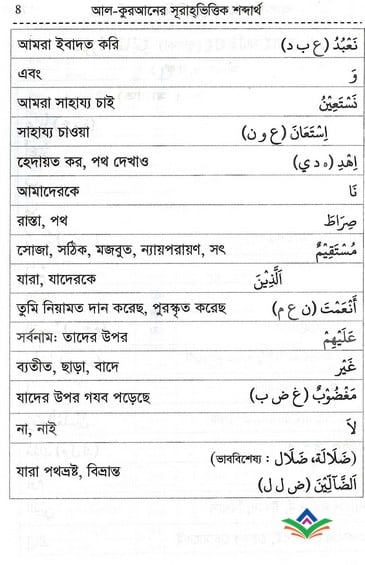 8 আল-কুরআনের সূরাহ্ভিত্তিক শব্দার্থ
আমরা ইবাদত করি نَعْبُدُ (ع ب د)
এবং وَ
আমরা সাহায্য চাই نَسْتَعِيْنُ
সাহায্য চাওয়া اِسْتَعَانَ (ع و ن)
হেদায়ত কর, পথ দেখাও اِهْدِ (ه د ي)
আমাদেরকে نَا
রাস্তা, পথ صِرَاطَ
সোজা, সঠিক, মজবুত, ন্যায়পরায়ণ, সৎ مُسْتَقِيْمٌ
যারা, যাদেরকে اَلَّذِيْنَ
তুমি নিয়ামত দান করেছ, পুরস্কৃত করেছ أَنْعَمْتَ (ن ع م)
সর্বনাম: তাদের উপর عَلَيْهِمْ
ব্যতীত, ছাড়া, বাদে غَيْر
যাদের উপর গযব পড়েছে مَغْضُوْبٌ (غ ض ب)
না, নাই لاَ
(ভাববিশেষ্য : ضَلَالَة، ضَلَال)
যারা পথভ্রষ্ট, বিভ্রান্ত اَلضَّالِّيْنَ (ض ل ل)